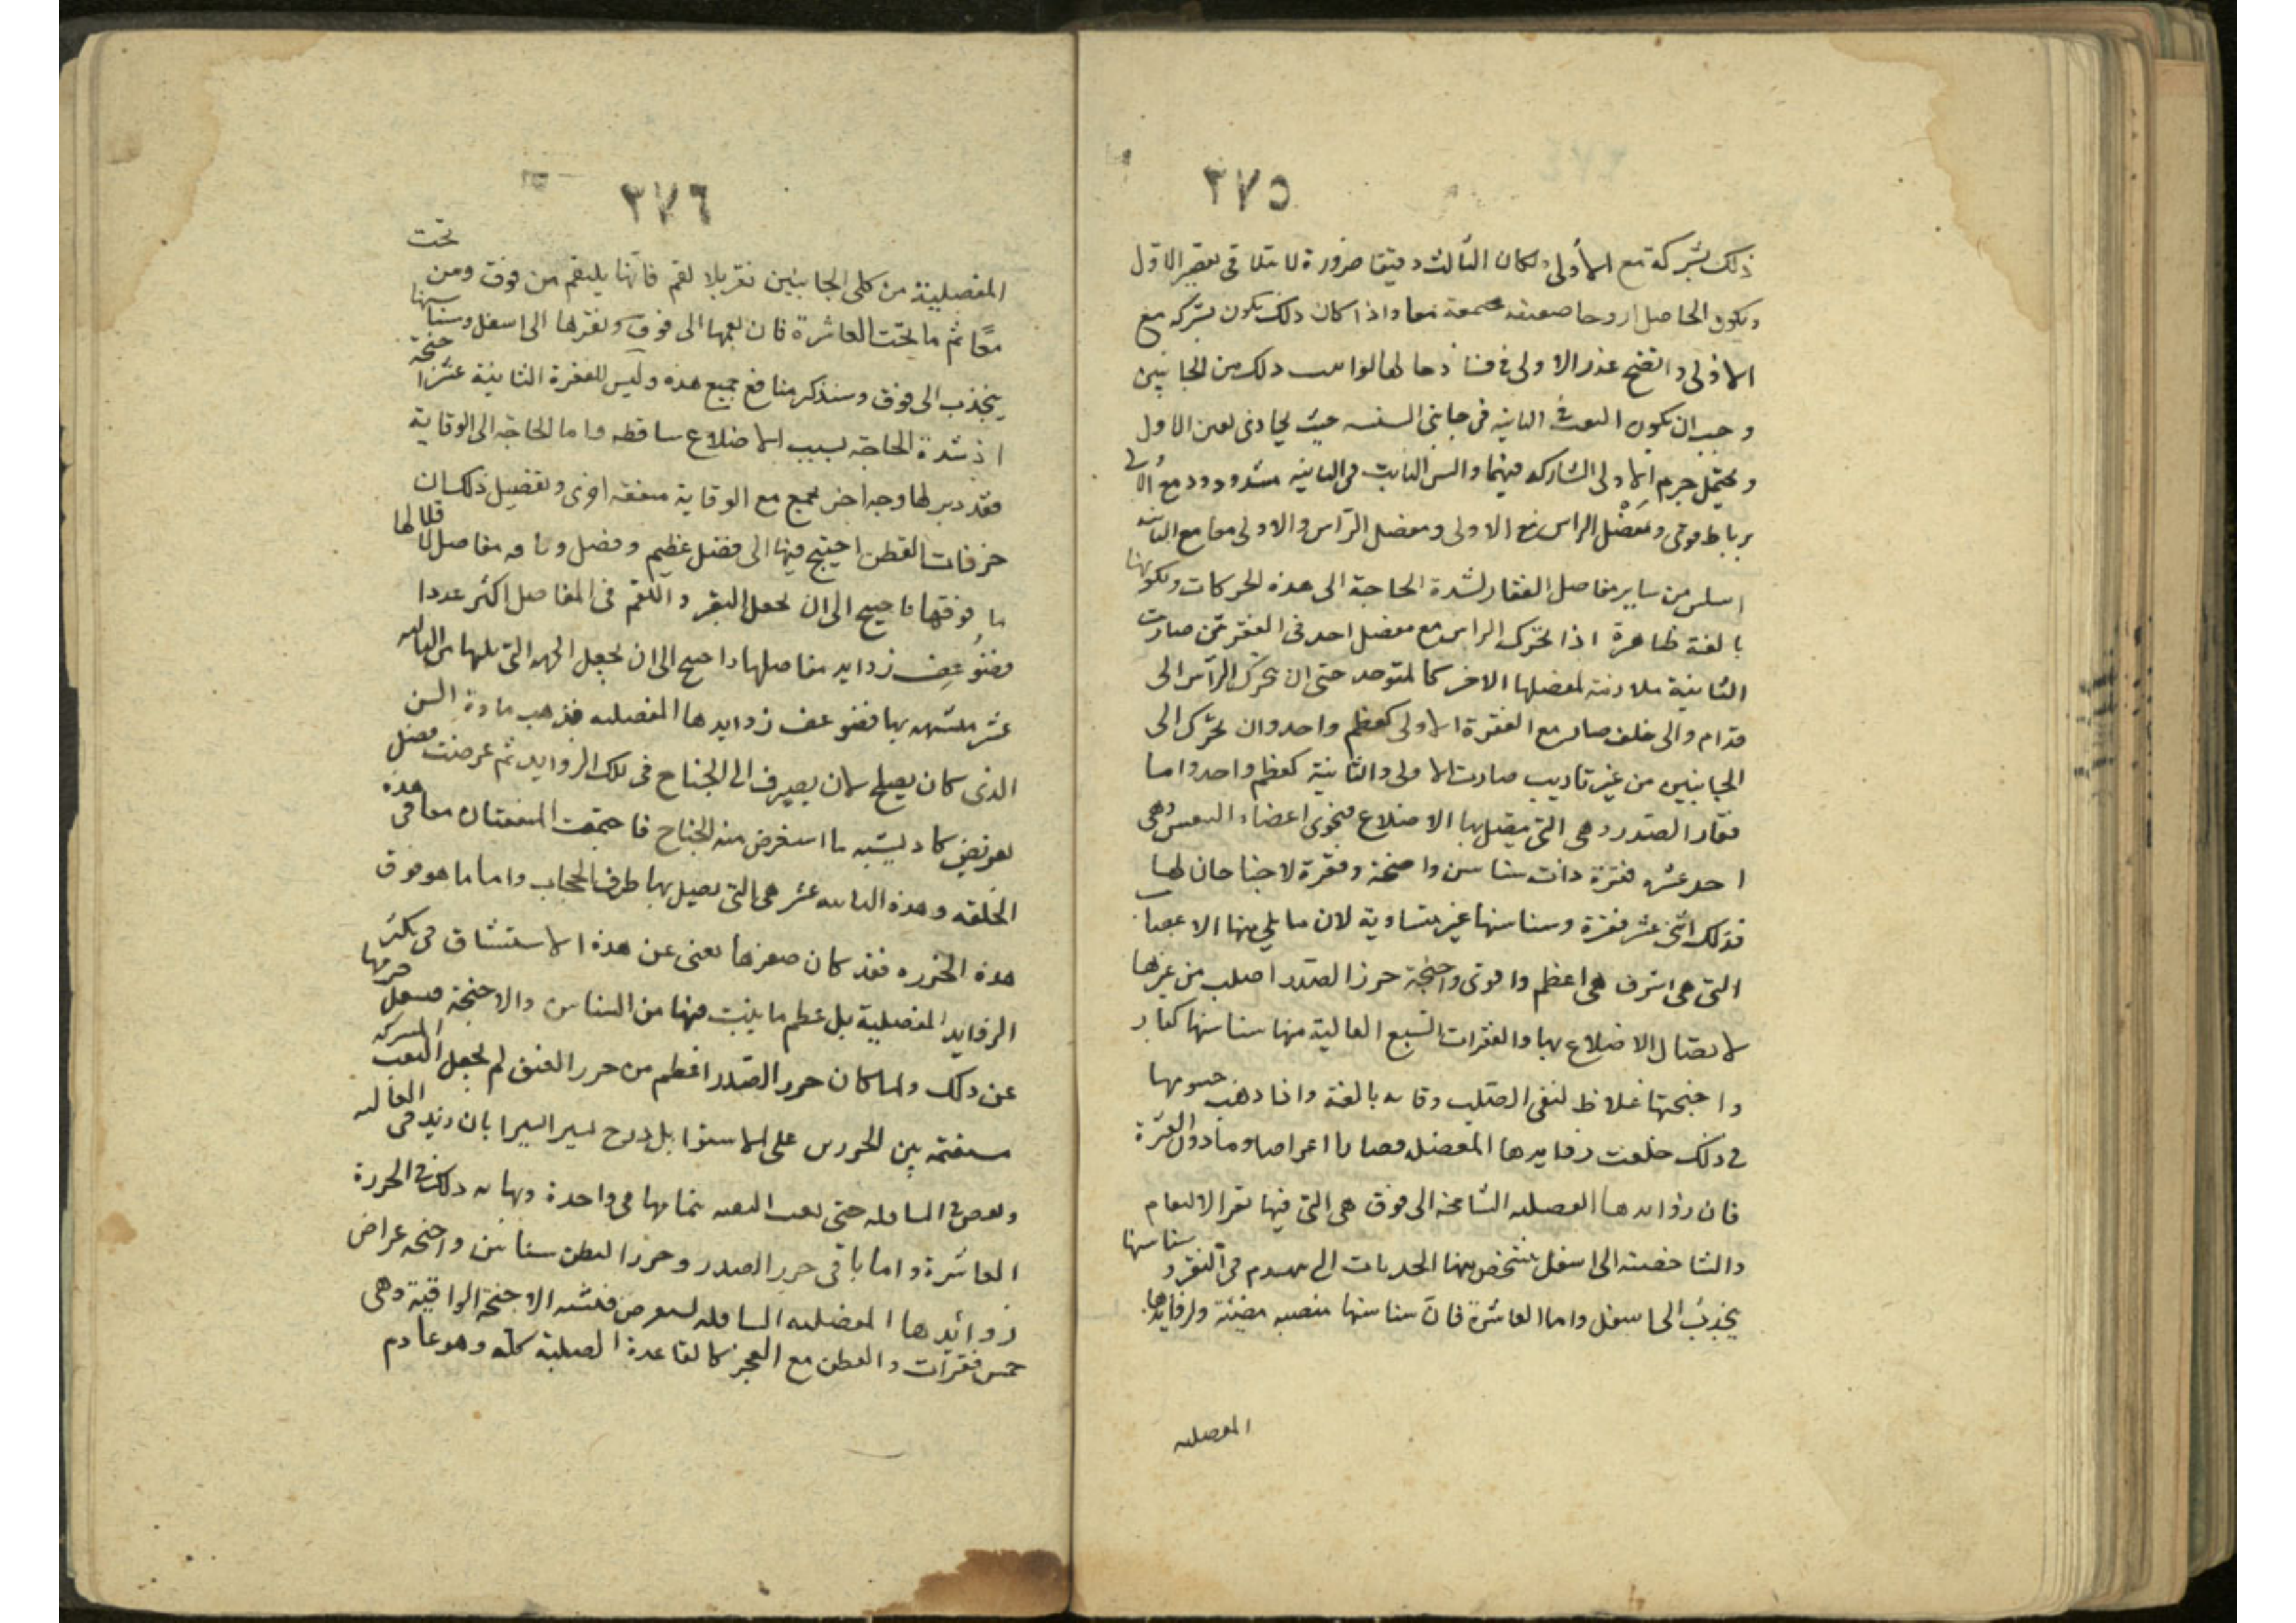 ٢٧٥
ذلك بشركة مع الأولى ولكان الثالث دقيقا ضرورة لا يتلاقى تقصير الاول
ويكون الحاصل ازوجا ضعيفه مجتمعة معا واذا كان ذلك يكون بشركه مع
الاولى واتضح عذر الاولى في ذلك من الجانبين
وجب ان يكون الثقب في الثانيه في جانبي السنسنه حيث يحاذى ثقبى الاول
ويحتمل جرم الاولى المشاركه فيهما والسن النابت من الثانيه مشدود مع الاولى
برباط قوى ومفصل الراس مع الاولى ومفصل الرأس والاولى معا مع الثانيه
اسلس من ساير مفاصل الفقار لشدة الحاجة الى هذه الحركات ولكونها
بالغة ظاهرة اذا تحرك الراس مع مفصل احدى الفقرتين صارت
الثانية ملازمة لمفصلها الاخر كالمتوحد حتى ان تحرك الرأس الى
قدام والى خلف صار مع الفقرة الاولى كعظم واحد وان تحرك الى
الجانبين من غير تاريب صارت الاولى والثانية كعظم واحد واما
فقار الصدر وهى التى يتصل بها الاضلاع فتحوى اعضاء التنفس وهى
احد عشر فقرة ذات سناسن واجنحة وفقرة لا جناحان لها
فذلك اثنى عشر فقرة وسناسنها غير متساوية لان ما يلى منها الاعضا
التى هى اشرف هى اعظم واقوى واجنحة خرز الصدر اصلب من غيرها
لاتصال الاضلاع بها والفقرات السبع العالية منها سناسنها كبار
واجنحتها غلاظ لتقى القلب وقايه بالغة واذا ذهب جسومها
فى ذلك خلقت زوايدها المفصليه قصارا اعراضا وما دون العشرة
فان زوايدها المفصليه الشاخصه الى فوق هى التى فيها نقر الالتقام
والشاخصة الى اسفل يشخص منها الحدبات التى تنهندم فى النقر وسناسنها
ينجذب الى اسفل واما العاشرة فان سناسنها منتصبه مقببة ولزوايدها
المفصليه
٢٧٦
المفصلية من كلى الجانبين نقر بلا لقم فانها يلتقم من فوق ومن تحت
معًا ثم ما تحت العاشرة فان لقمها الى فوق ونقرها الى اسفل وسناسنها
ينجذب الى فوق وسنذكر منافع جميع هذه وليس للفقرة الثانية عشر اجنحة
اذ شدة الحاجة بسبب الاضلاع ساقطه واما الحاجة الى الوقاية
فقد دبر لها وجه اخر يجمع مع الوقاية منفعه اخرى وتفصيل ذلك ان
خرزات القطن احتيج فيها الى فضل عظم وفضل وثاقه مفاصل لاقلالها
ما فوقها فاحتيج الى ان يجعل النقر واللقم فى المفاصل اكثر عددا
فضُوعِف زوايد مفاصلها واحتيج الى ان يجعل الجهه التى يليها من الثانيه
عشر متشبهه بها فضوعف زوايدها المفصليه فذهب مادة
الذى كان يصلح لان يصرف الى الجناح فى تلك الزوايد ثم عرضت فضل
تعريض كاد يشبه ما استعرض منه الجناح فاجتمعت المنفعتان معا فى هذه
الخلقه وهذه الثانيه عشر هى التى يتصل بها طرف الحجاب واما ما هو فوق
هذه الخرزه فقد كان صغرها يغنى عن هذه الاستيثاق فى تكثر
الزوايد المفصلية بل عظم ما ينبت منها من السناسن والاجنحة فشغل جرمها
عن ذلك ولما كان خرز الصدر اعظم من خرز العنق لم يجعل الثقب المشتركه
منقسمة بين الخرزتين على الاستوا بل درج يسيرا يسيرا بان زيد فى العاليه
ونقص فى السافله حتى بقيت الثقبه بتمامها فى واحدة ونهايه ذلك فى الخرزة
العاشرة واما باقى خرز الصدر وخرز القطن سناسن واجنحه عراض
زوائدها المفصليه السافله تستعرض فتشبه الاجنحة الواقية وهى
خمس فقرات والقطن مع العجز كالقاعدة الصلبة كله وهو عادم